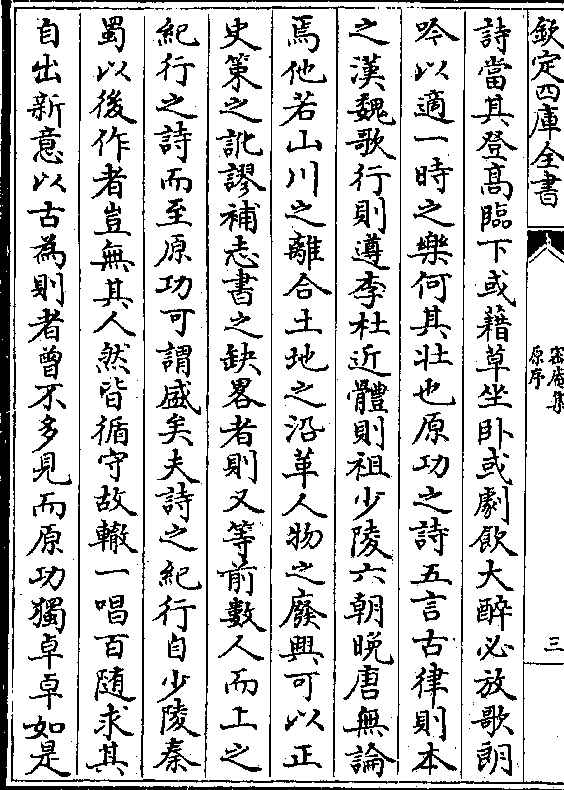 欽定四庫全書
密庵集
原序
三
詩當其登髙臨下或藉草坐卧或劇飲大醉必放歌朗
吟以適一時之樂何其壯也原功之詩五言古律則本
之漢魏歌行則遵李杜近體則祖少陵六朝晚唐無論
焉他若山川之離合土地之沿革人物之廢興可以正
史策之訛謬補志書之缺畧者則又等前數人而上之
紀行之詩而至原功可謂盛矣夫詩之紀行自少陵秦
蜀以後作者豈無其人然皆循守故轍一唱百随求其
自出新意以古為則者曾不多見而原功獨卓卓如是